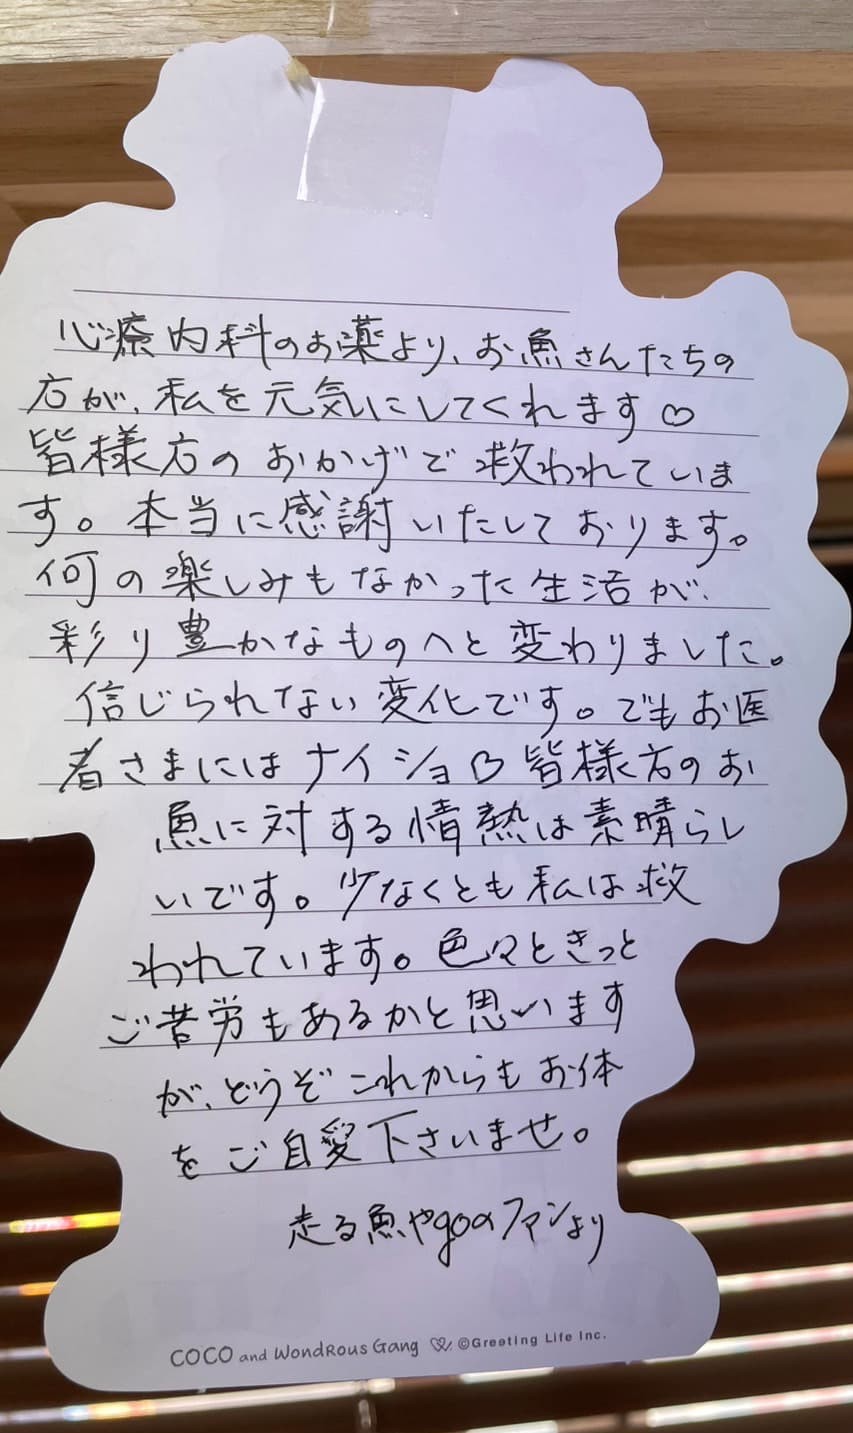 心療内科のお薬より、お魚さんたちの
方が、私を元気にしてくれます♡
皆様方のおかげで救われていま
す。本当に感謝いたしております。
何の楽しみもなかった生活が、
彩り豊かなものへと変わりました。
信じられない変化です。でもお医
者さまにはナイショ♡皆様方のお
魚に対する情熱は素晴らし
いです。少なくとも私は救
われています。色々ときっと
ご苦労もあるかと思います
が、どうぞこれからもお体
をご自愛下さいませ。
走る魚やgoのファンより
COCO and WONDROUS GANG ©Greeting Life Inc.